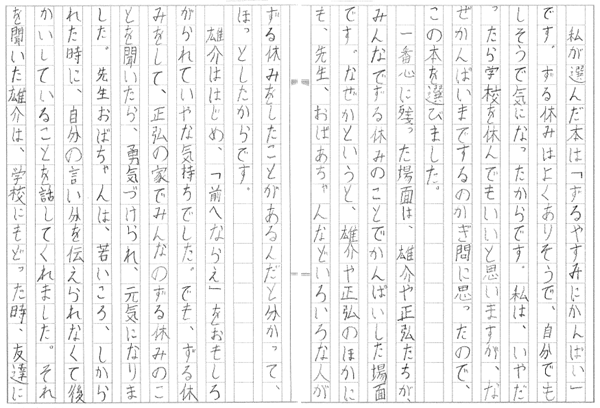 私が選んだ本は「ずるやすみにかんぱい」
です。ずる休みはよくありそうで、自分でも
しそうで気になったからです。私は、いやだ
ったら学校を休んでもいいと思いますが、な
ぜかんぱいまでするのかぎ問に思ったので、
この本を選びました。
一番心に残った場面は、雄介や正弘たちが、
みんなでずる休みのことでかんぱいした場面
です。なぜかというと、雄介や正弘のほかに
も、先生、おばあちゃんなどいろいろな人が
ずる休みをしたことがあるんだと分かって、
ほっとしたからです。
雄介ははじめ、「前へならえ」をおもしろ
がられていやな気持ちでした。でも、ずる休
みをして、正弘の家でみんなのずる休みのこ
とを聞いたら、勇気づけられ、元気になりま
した。先生おばちゃんは、若いころ、しから
れた時に、自分の言い分を伝えられなくて後
かいしていることを話してくれました。それ
を聞いた雄介は、学校にもどった時、友達に